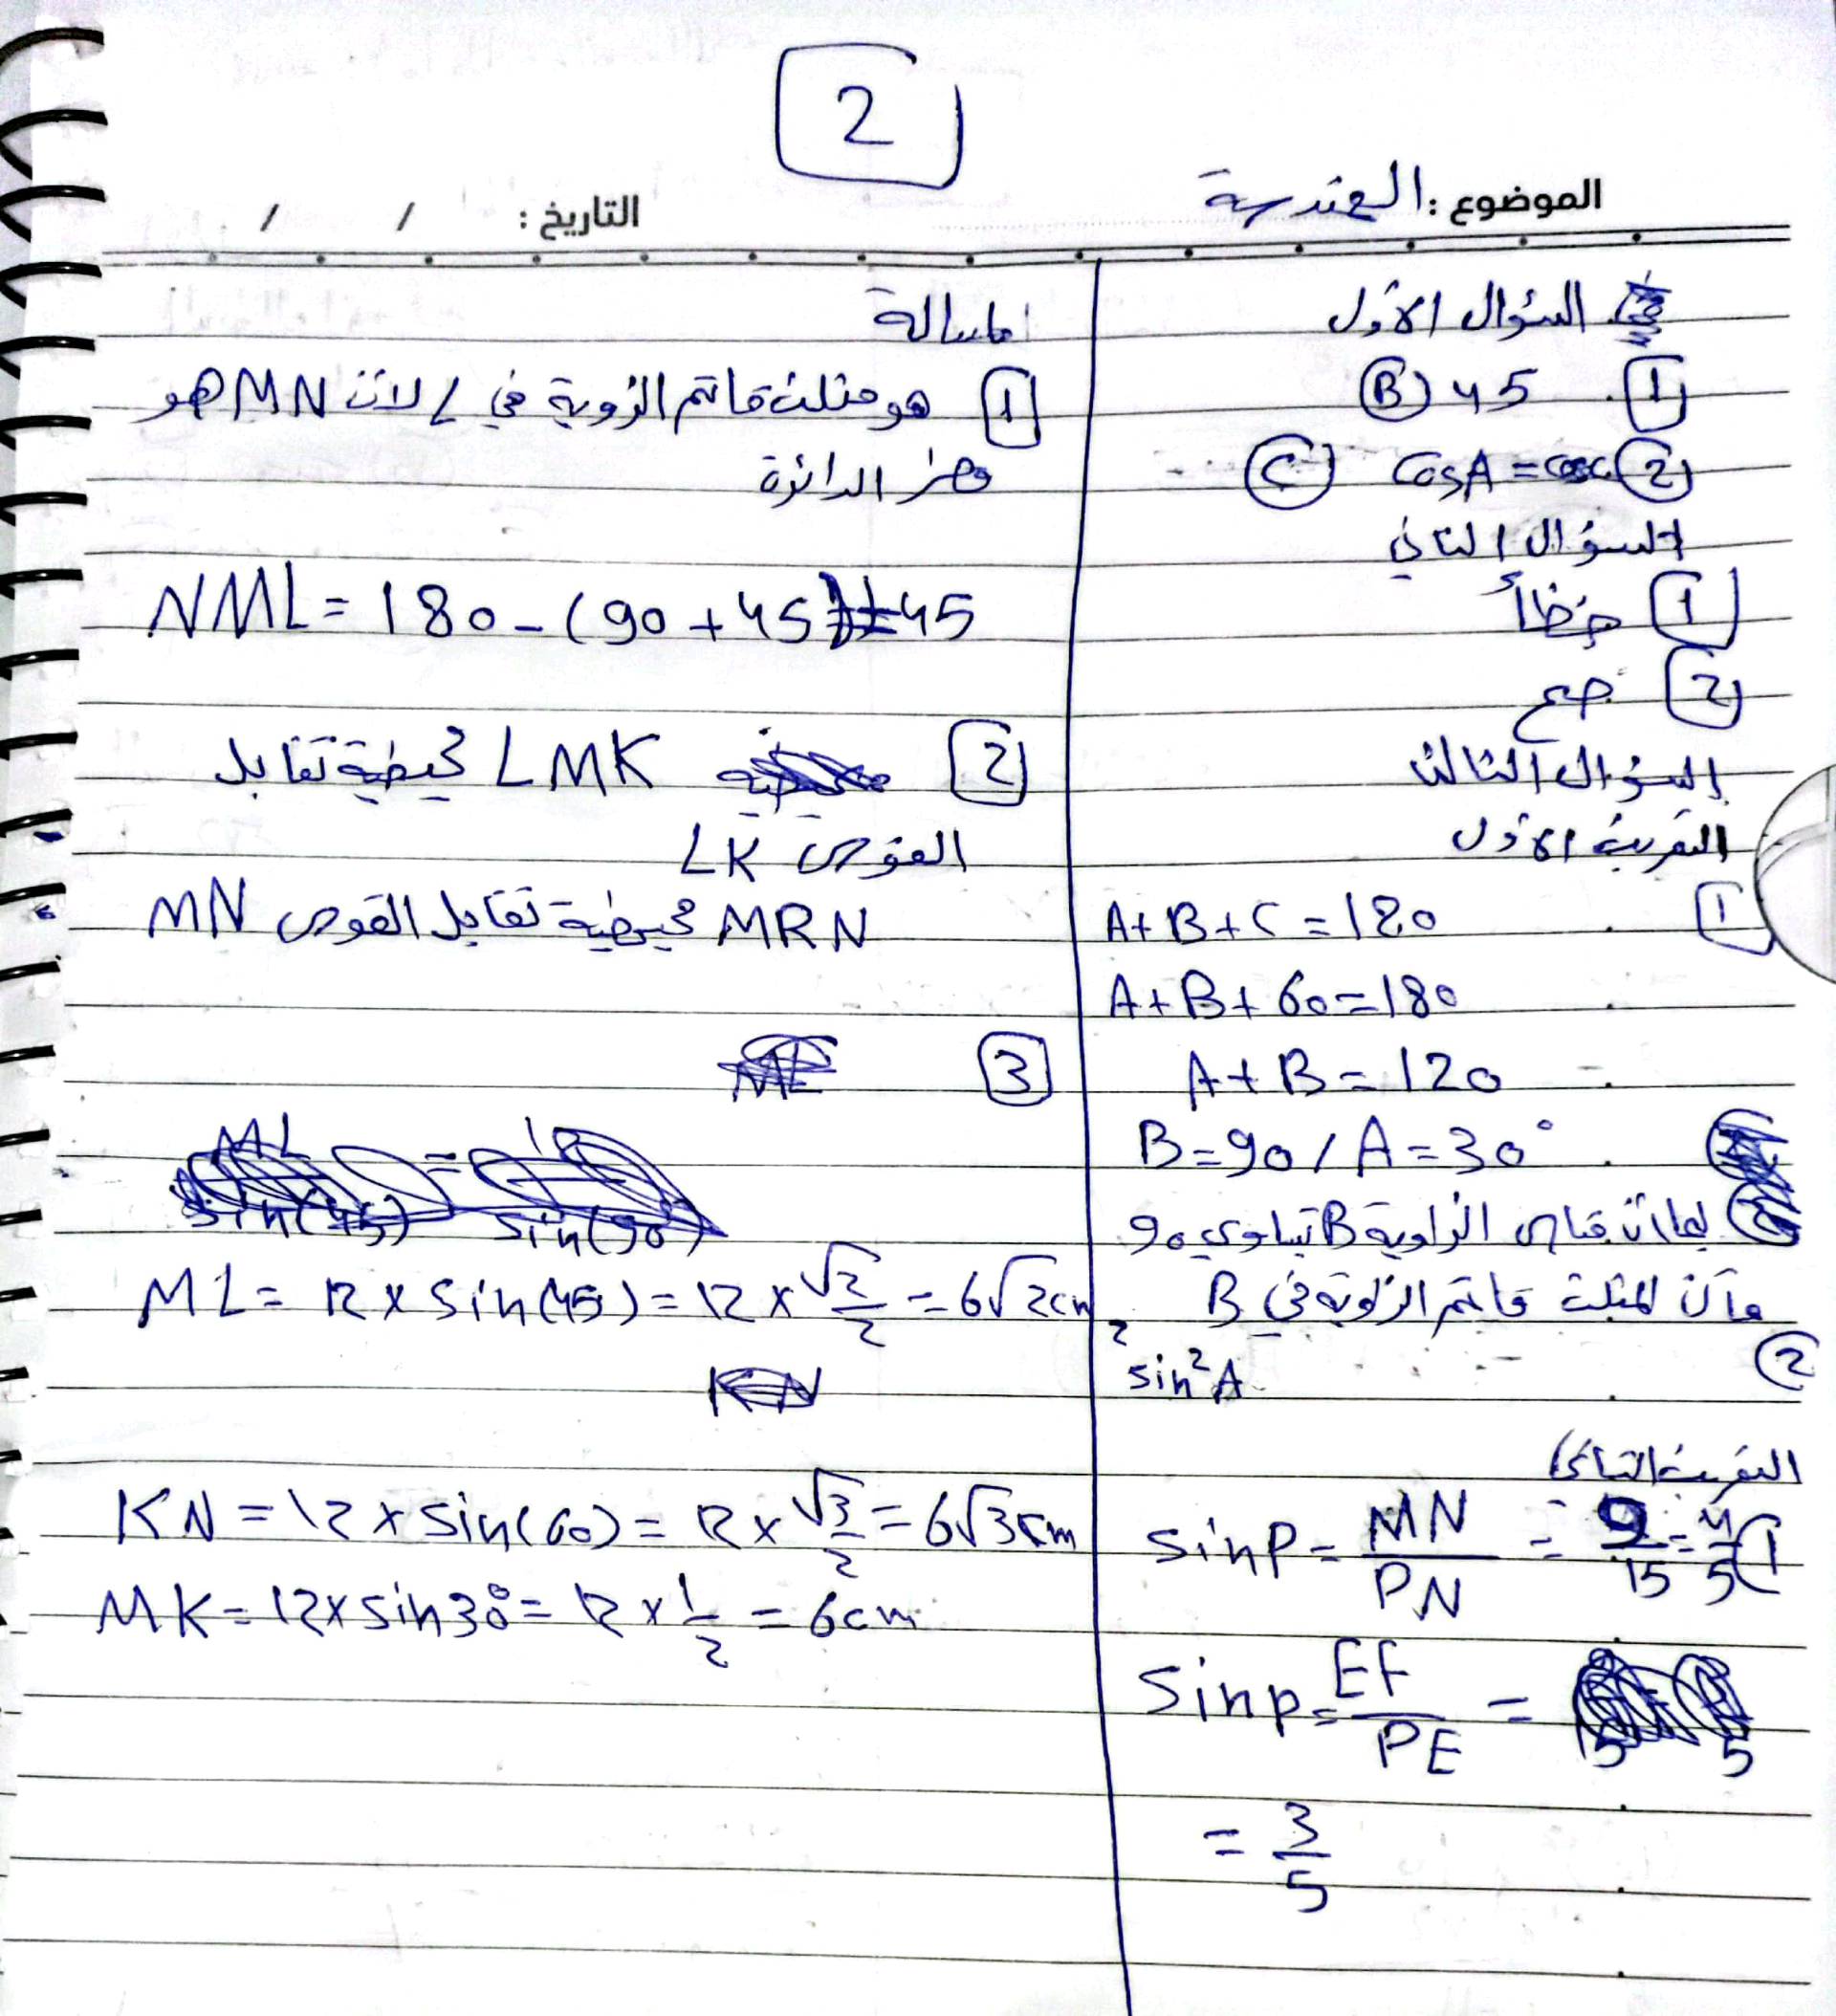 2
الموضوع : الهندسة
التاريخ : / /
السؤال الأول
1 45 (B
2 cosA = cosc C
السؤال الثاني
1 خطأ
2 صح
السؤال الثالث
التمرين الأول
1 A+B+C=180
A+B+60=180
A+B=120
B=90 / A=30°
بما أن قياس الزاوية B تساوي 90
فأن المثلث قائم الزاوية في B
2
sin²A
التمرين الثاني
1) sinP = MN/PN = 9/15 =
sinp = EF/PE =
= 3/5
المسالة
1 هو مثلث قائم الزوية في L لأن MN هو
قطر الدائرة
NML = 180 - (90 + 45) = 45
2 LMK محيطية تقابل
القوس LK
MRN محيطية تقابل القوس MN
3
ML = 12 x sin(45) = 12 x √2/2 = 6√2cm
KN = 12 x sin(60) = 12 x √3/2 = 6√3cm
MK = 12 x sin30° = 12 x 1/2 = 6cm